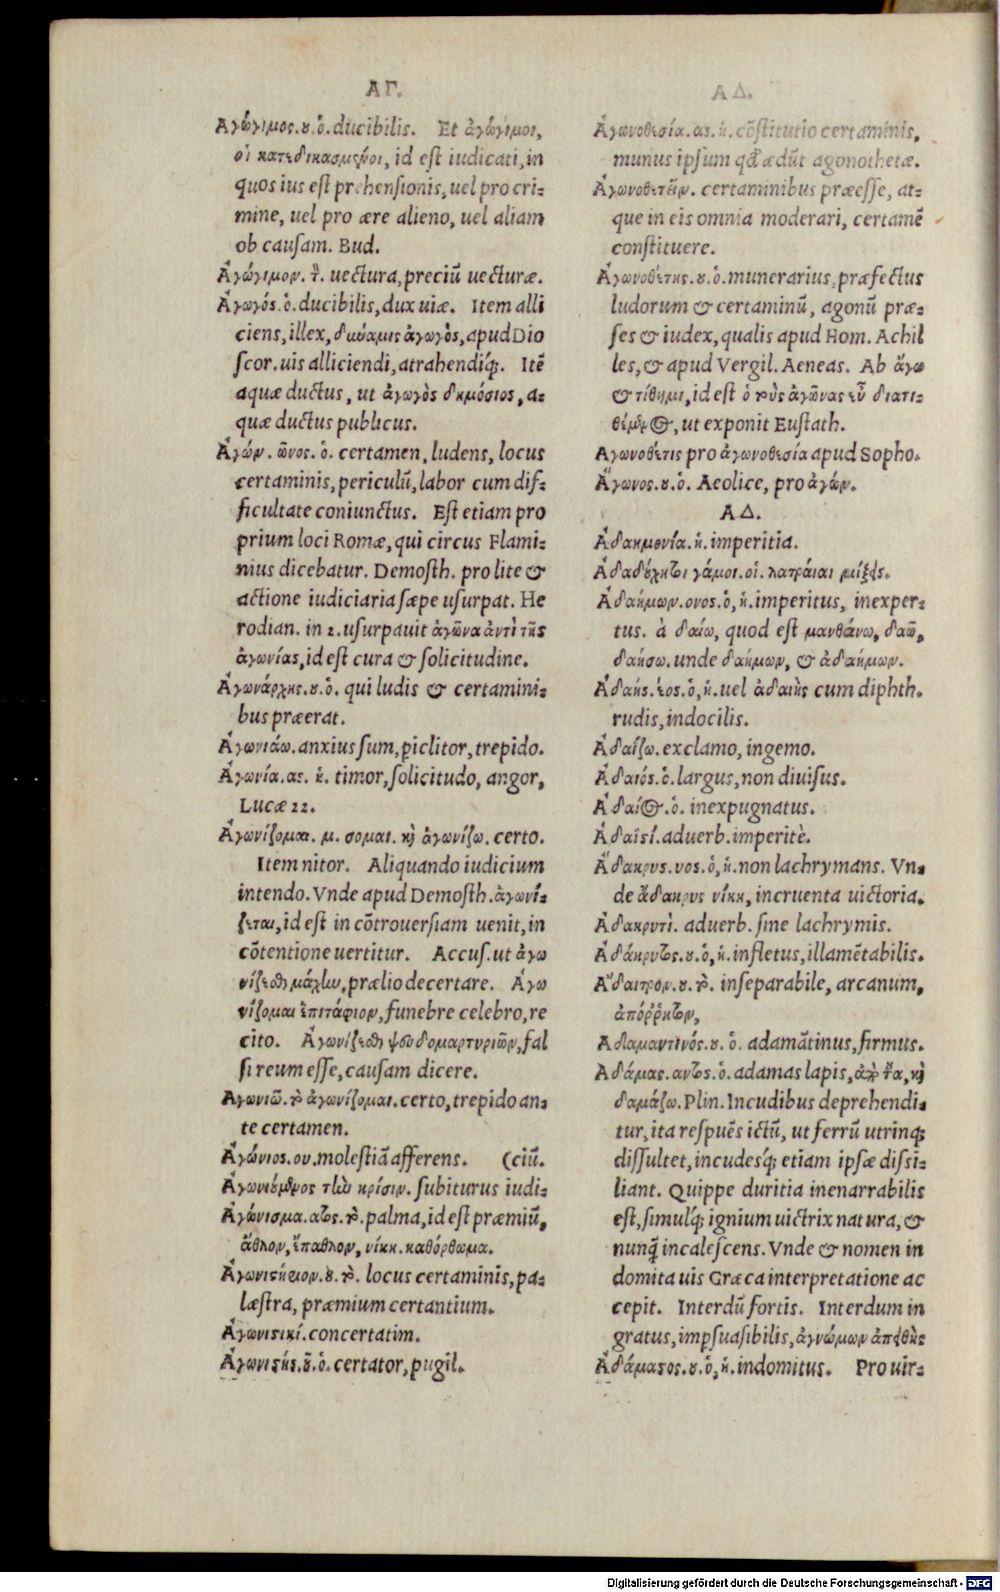 ΑΓ.
Ἀγώγιμος.ου.ὁ.ducibilis. Et ἀγώγιμοι,
οἱ κατεδικασμένοι, id est iudicati, in
quos ius est prehensionis, uel pro cri-
mine, uel pro ære alieno, uel aliam
ob causam. Bud.
Ἀγώγιμον. τὸ. uectura, preciũ uecturæ.
Ἀγωγός.ὁ.ducibilis, dux uiæ. Item alli
ciens, illex, δύναμις ἀγωγὸς, apud Dio
scor. uis alliciendi, atrahendiq́;. Itẽ
aquæductus, ut ἀγωγὸς δημόσιος, a-
quæductus publicus.
Ἀγών. ῶνος. ὁ. certamen, ludens, locus
certaminis, periculũ, labor cum dif-
ficultate coniunctus. Est etiam pro
prium loci Romæ, qui circus Flami-
nius dicebatur. Demosth. pro lite &
actione iudiciaria sæpe usurpat. He
rodian. in 2. usurpauit ἀγῶνα ἀντὶ τῆς
ἀγωνίας, id est cura & solicitudine.
Ἀγωνάρχης.ου.ὁ. qui ludis & certamini-
bus præerat.
Ἀγωνιάω. anxius sum, piclitor, trepido.
Ἀγωνία.ας. ἡ. timor, solicitudo, angor,
Lucæ 22.
Ἀγωνίζομαι. μ. σομαι. καὶ ἀγωνίζω. certo.
Item nitor. Aliquando iudicium
intendo. Vnde apud Demosth. ἀγωνί-
ζεται, id est in cõtrouersiam uenit, in
cõtentione uertitur. Accus. ut ἀγω
νίζεσθαι μάχην, prælio decertare. Ἀγω
νίζομαι ἐπιτάφιον, funebre celebro, re
cito. Ἀγωνίζεσθαι ψευδομαρτυριῶν, fal
si reum esse, causam dicere.
Ἀγωνιῶ. τὸ ἀγωνίζομαι. certo, trepido an-
te certamen.
Ἀγώνιος.ου. molestiã afferens. (ciũ.
Ἀγωνιούμενος τὴν κρίσιν. subiturus iudi-
Ἀγώνισμα.ατος.τὸ. palma, id est præmiũ,
ἄθλον, ἔπαθλον, νίκη. καθόρθωμα.
Ἀγωνιστήριον.ου.τὸ. locus certaminis, pa-
læstra, præmium certantium.
Ἀγωνιστικί. concertatim.
Ἀγωνιστής.οῦ.ὁ. certator, pugil.
ΑΔ.
Ἀγωνοθεσία.ας.ἡ. cõstitutio certaminis,
munus ipsum qđ ædũt agonothetæ.
Ἀγωνοθετεῖν. certaminibus præesse, at-
que in eis omnia moderari, certamẽ
constituere.
Ἀγωνοθέτης.ου.ὁ. munerarius, præfectus
ludorum & certaminũ, agonũ præ-
ses & iudex, qualis apud Hom. Achil
les, & apud Vergil. Aeneas. Ab ἄγω
& τίθημι, id est ὁ τοὺς ἀγῶνας εὖ διατι-
θέμενος, ut exponit Eustath.
Αγωνοθέτις pro ἀγωνοθεσία apud Sopho.
Ἄγωνος.ου.ὁ. Aeolice, pro ἀγών.
ΑΔ.
Ἀδαημονία.ἡ. imperitia.
Ἀδαδούχητοι γάμοι.οἱ. λατραῖαι μίξεις.
Ἀδαήμων.ονος.ὁ,ἡ. imperitus, inexper-
tus. à δαίω, quod est μανθάνω, δαῶ,
δαήσω. unde δαήμων, & ἀδαήμων.
Ἀδαής.έος.ὁ,ἡ. uel ἀδαιὴς cum diphth.
rudis, indocilis.
Ἀδαΐζω. exclamo, ingemo.
Ἀδαιός.ὁ. largus, non diuisus.
Ἀδάϊος.ὁ. inexpugnatus.
Ἀδαϊσί. aduerb. imperitè.
Ἄδακρυς.υος.ὁ,ἡ. non lachrymans. Vn-
de ἄδακρυς νίκη, incruenta uictoria.
Ἀδακρυτὶ. aduerb. sine lachrymis.
Ἀδάκρυτος.ου.ὁ,ἡ. infletus, illamẽtabilis.
Ἄδαιτρον.ου.τὸ. inseparabile, arcanum,
ἀπόῤῥητον,
Αδαμαντινός.ου. ὁ. adamãtinus, firmus.
Ἀδάμας.αντος.ὁ. adamas lapis, παρὰ τὸ α, καὶ
δαμάζω. Plin. Incudibus deprehendi-
tur, ita respuẽs ictũ, ut ferrũ utrinq;
dissultet, incudesq́; etiam ipsæ dissi-
liant. Quippe duritia inenarrabilis
est, simulq́; ignium uictrix natura, &
nunq̃ incalescens. Vnde & nomen in
domita uis Græca interpretatione ac
cepit. Interdũ fortis. Interdum in
gratus, impsuasibilis, ἀγνώμων ἀπειθὴς
Ἀδάμαστος.ου.ὁ,ἡ. indomitus. Pro uir-
Digitalisierung gefördert durch die Deutsche Forschungsgemeinschaft - DFG